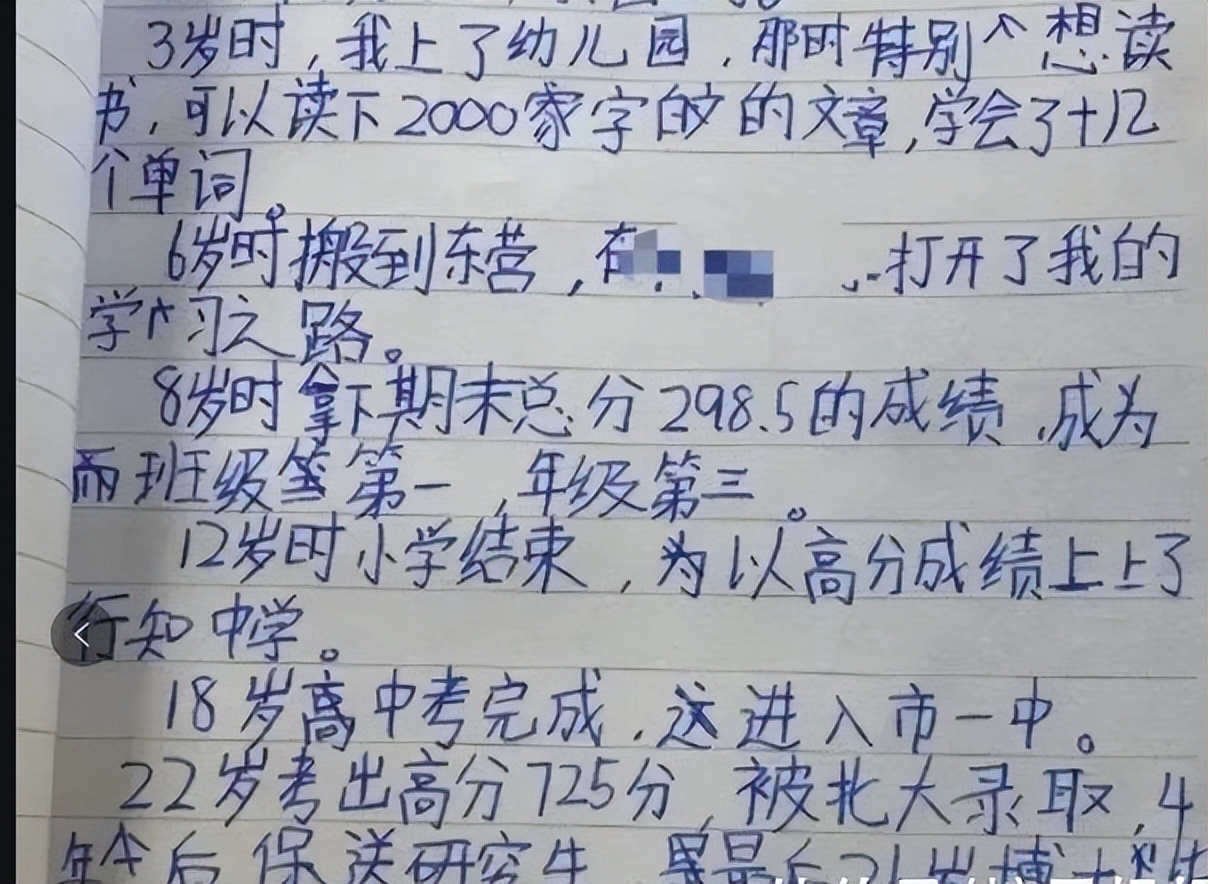 3岁时，我上了幼儿园，那时特别想读
书，可以读下2000家字的文章，学会了十几
个单词。
6岁时搬到东营，在 打开了我的
学习之路。
8岁时拿下期末总分298.5的成绩，成为
班级第一，年级第三。
12岁时小学结束，为以高分成绩上上了
行知中学。
18岁高中考完成，进入市一中。
22岁考出高分725分，被北大录取，4
年后保送研究生，